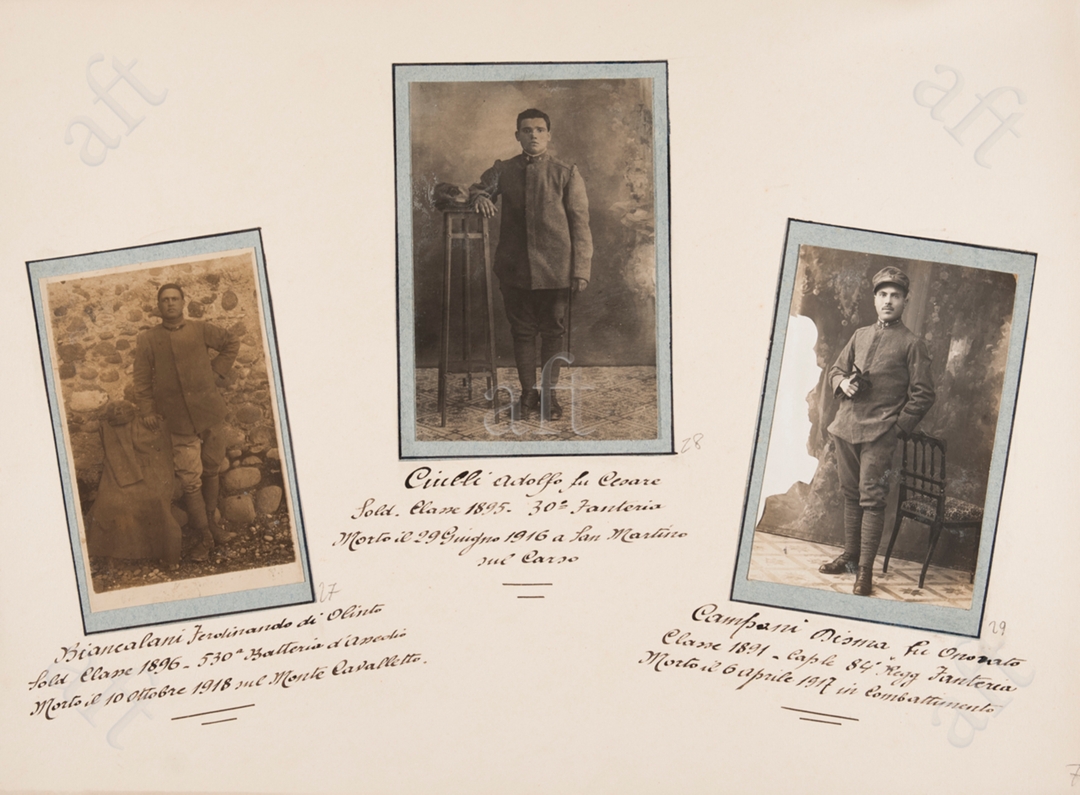 28
Ciulli Adolfo fu Cesare
Sold. Classe 1895 - 30º Fanteria
Morto il 29 Giugno 1916 a San Martino
sul Carso
27
Biancalani Ferdinando di Olinto
Sold. Classe 1896 - 530ª Batteria d'assedio
Morto il 10 Ottobre 1918 sul Monte Cavalletto.
29
Campani Disma fu Onorato
Classe 1891 - Cap.le 84º Regg Fanteria
Morto il 6 Aprile 1917 in Combattimento
7
aft
aft
aft
aft
aft